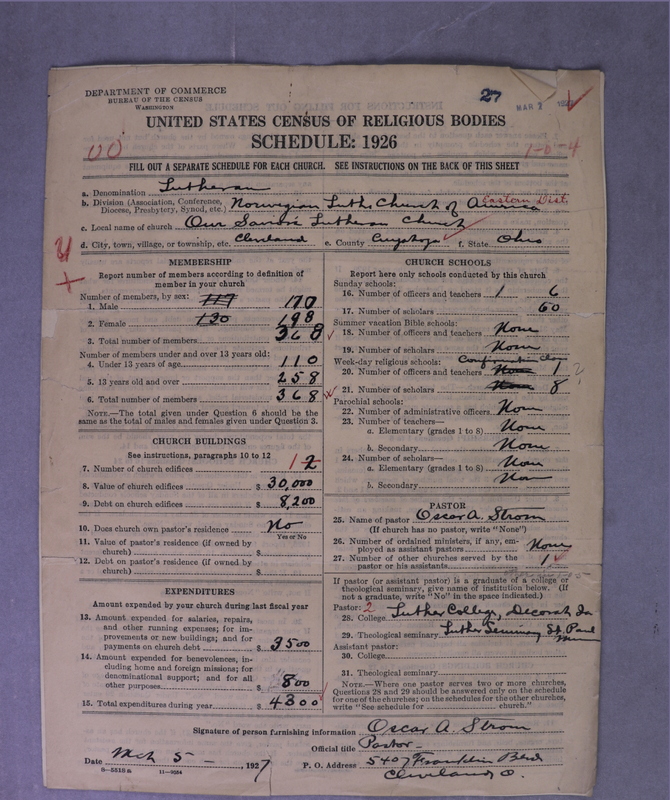 DEPARTMENT OF COMMERCE
BUREAU OF THE CENSUS
WASHINGTON
27
MAR 7
UNITED STATES CENSUS OF RELIGIOUS BODIES
SCHEDULE: 1926
00
1-0-4
FILL OUT A SEPARATE SCHEDULE FOR EACH CHURCH. SEE INSTRUCTIONS ON THE BACK OF THIS SHEET
a. Denomination Lutheran
b. Division (Association, Conference, Diocese, Presbytery, Synod, etc.) Norwegian Luth. Church of America Eastern Dist.
c. Local name of church Our Savior's Lutheran Church
d. City, town, village, or township, etc. Cleveland e. County Cuyahoga f. State Ohio
MEMBERSHIP
Report number of members according to definition of member in your church
Number of members, by sex:
1. Male 117 170
2. Female 130 198
3. Total number of members 368
Number of members under and over 13 years old:
4. Under 13 years of age 110
5. 13 years old and over 258
6. Total number of members 368
NOTE.—The total given under Question 6 should be the same as the total of males and females given under Question 3.
CHURCH BUILDINGS
See instructions, paragraphs 10 to 12
7. Number of church edifices 1 2
8. Value of church edifices $ 30,000
9. Debt on church edifices $ 8,200
10. Does church own pastor's residence No
Yes or No
11. Value of pastor's residence (if owned by church) $
12. Debt on pastor's residence (if owned by church) $
EXPENDITURES
Amount expended by your church during last fiscal year
13. Amount expended for salaries, repairs, and other running expenses; for improvements or new buildings; and for payments on church debt $ 3500
14. Amount expended for benevolences, including home and foreign missions; for denominational support; and for all other purposes $ 800
15. Total expenditures during year $ 4300
CHURCH SCHOOLS
Report here only schools conducted by this church
Sunday schools:
16. Number of officers and teachers 1 6
17. Number of scholars 60
Summer vacation Bible schools:
18. Number of officers and teachers None
19. Number of scholars None
Week-day religious schools: Confirmation Class
20. Number of officers and teachers None 1 2
21. Number of scholars None 8
Parochial schools:
22. Number of administrative officers None
23. Number of teachers—
a. Elementary (grades 1 to 8) None
b. Secondary None
24. Number of scholars—
a. Elementary (grades 1 to 8) None
b. Secondary None
PASTOR
25. Name of pastor Oscar A. Strom
(If church has no pastor, write "None")
26. Number of ordained ministers, if any, employed as assistant pastors None
27. Number of other churches served by the pastor or his assistants 1
If pastor (or assistant pastor) is a graduate of a college or theological seminary, give name of institution below. (If not a graduate, write "No" in the space indicated.)
Pastor: 2
28. College Luther College, Decorah Ia
29. Theological seminary Luther Seminary St. Paul Minn
Assistant pastor:
30. College
31. Theological seminary
NOTE.—Where one pastor serves two or more churches, Questions 28 and 29 should be answered only on the schedule for one of the churches; on the schedules for the other churches, write "See schedule for church."
Signature of person furnishing information Oscar A. Strom
Official title Pastor
Date Mch 5 -, 1927
P. O. Address 5407 Franklin Blvd
Cleveland O.
9-5518 a 11-9264